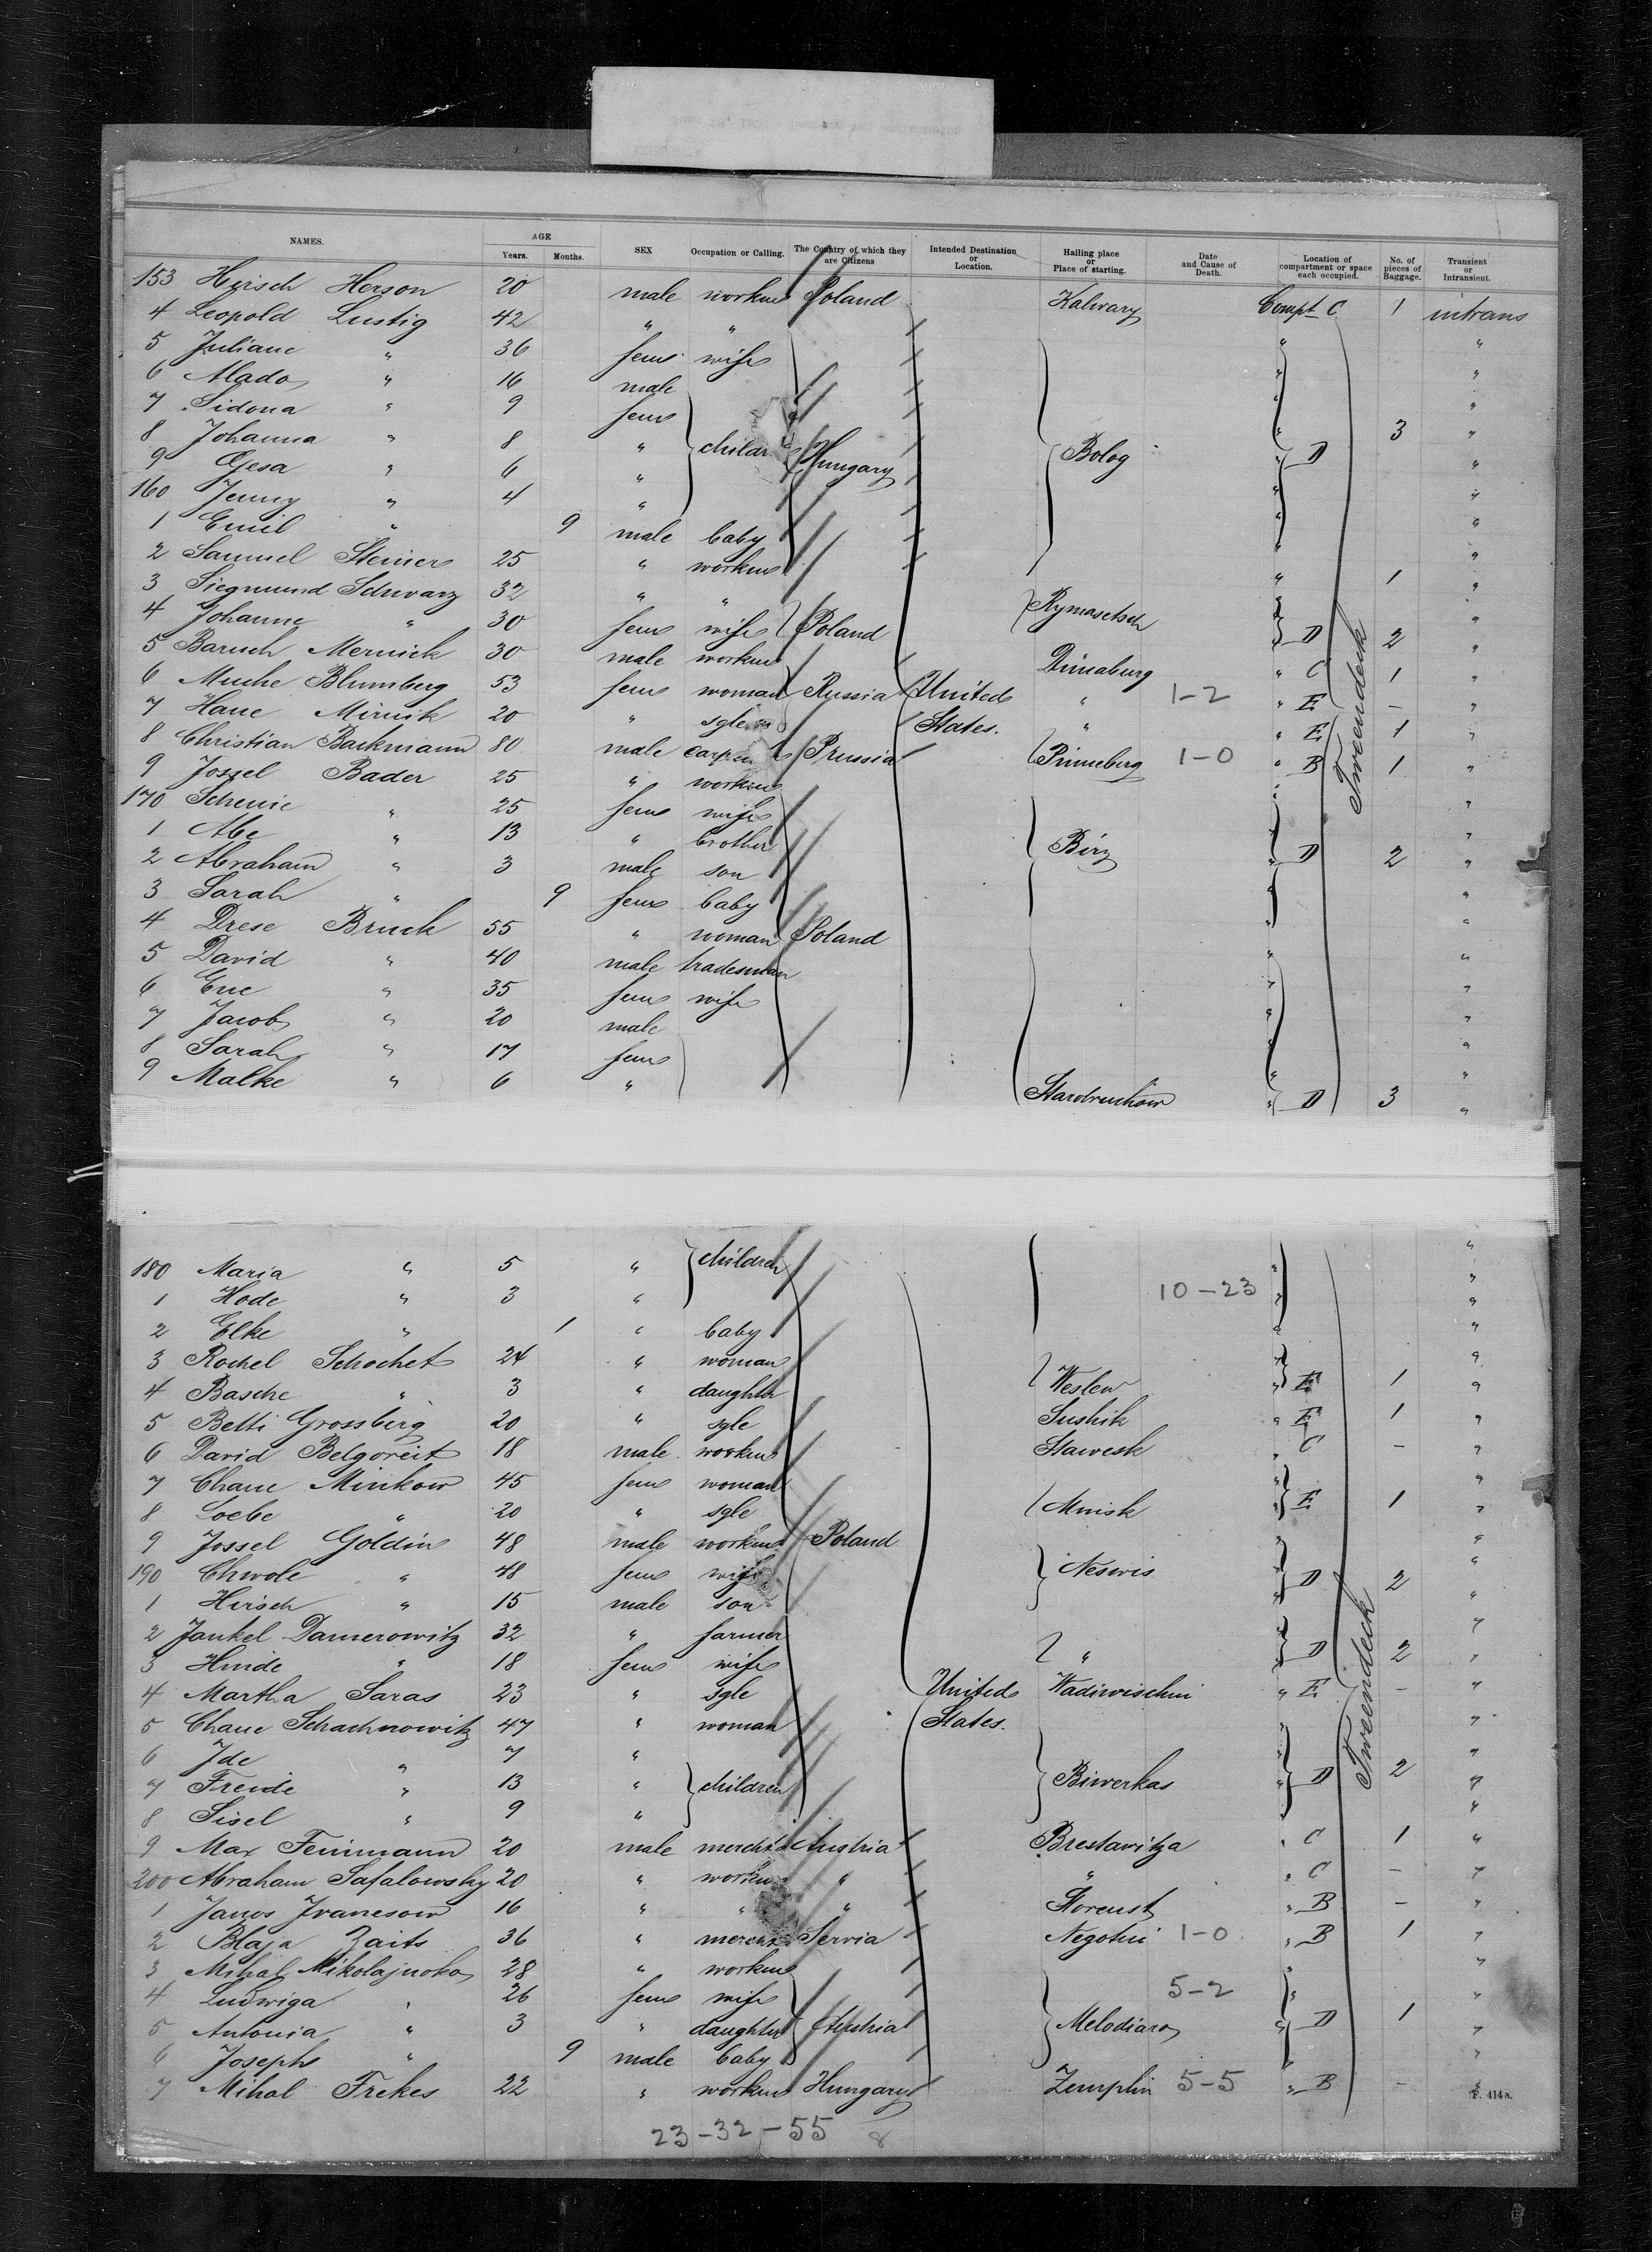 NAMES. AGE Years. Months. SEX Occupation or Calling. The Country of which they are Citizens Intended Destination or Location. Hailing place or Place of starting. Date and Cause of Death. Location of compartment or space each occupied. No. of pieces of Baggage. Transient or Intransient.
153 Hirsch Herson 20 male workm Poland Kalwary Compt C 1 intrans
4 Leopold Lustig 42 " " " "
5 Juliane " 36 fem wife " "
6 Alada " 16 male " "
7 Sidona " 9 fem " 3 "
8 Johanna " 8 " childr Hungary Bolog " D "
9 Gesa " 6 " " "
160 Jenny " 4 " " "
1 Emil " 9 male baby " "
2 Samuel Steiner 25 " workm " 1 "
3 Siegmund Schwarz 32 " " Rymasetsch " "
4 Johanne " 30 fem wife Poland " D 2 "
5 Baruch Mernick 30 male workm Dünaburg " C 1 "
6 Muche Blumberg 53 fem woman Russia United " 1-2 " E - "
7 Hane Mirnik 20 " sgle States. " " E 1 "
8 Christian Backmann 80 male carpent Prussia Pinneberg 1-0 " B 1 "
9 Jossel Bader 25 " workm " "
170 Scheine " 25 fem wife " "
1 Abe " 13 " brother Birz " D 2 "
2 Abraham " 3 male son " "
3 Sarah " 9 fem baby " "
4 Drese Bruck 55 " woman Poland " "
5 David " 40 male tradesman " "
6 Ene " 35 fem wife " "
7 Jacob " 20 male " "
8 Sarah " 17 fem " "
9 Malke " 6 " Starobruchow " D 3 "
Tweendeck
180 Maria " 5 " children " "
1 Hode " 3 " 10-23 " "
2 Elke " 1 " baby " "
3 Rochel Schochet 24 " woman " "
4 Basche " 3 " daughter Weslew " E 1 "
5 Betti Grossberg 20 " sgle Sushik " E 1 "
6 David Belgoreit 18 male workm Stawesk " C - "
7 Chane Minkow 45 fem woman " "
8 Loebe " 20 " sgle Minsk " E 1 "
9 Jossel Goldin 48 male workm Poland " "
190 Chwole " 48 fem wife Neswis " D 2 "
1 Hirsch " 15 male son " "
2 Jankel Damerowitz 32 " farmer " "
3 Hinde " 18 fem wife " " D 2 "
4 Martha Saras 23 " sgle United Wadiwischni " E - "
5 Chane Schachnowitz 47 " woman States. " "
6 Ide " 7 " " "
7 Freide " 13 " children Biwerkas " D 2 "
8 Sisel " 9 " "
9 Max Feinmann 20 male mercht Austria Brestawitza " C 1 "
200 Abraham Safalowsky 20 " workm " " " C - "
1 Janos Ivanesow 16 " " " Storeust " B - "
2 Blaja Zaits 36 " mercht Servia Negotin 1-0 " B 1 "
3 Mihal Mikolajnoka 28 " workm " "
4 Ludwiga " 26 fem wife 5-2 " "
5 Antonia " 3 " daughter Austria Melodiaro " D 1 "
6 Joseph " 9 male baby " "
7 Mihal Frekes 22 " workm Hungary Zemplin 5-5 " B - "
Tweendeck
F. 414a.
23-32-55 8